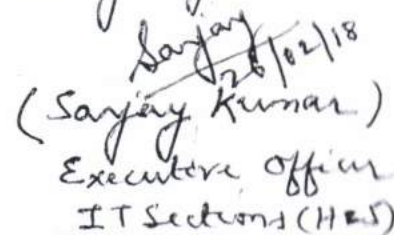 Sanjay
26/02/18
(Sanjay Kumar)
Executive Officer
IT Sections (H&S)